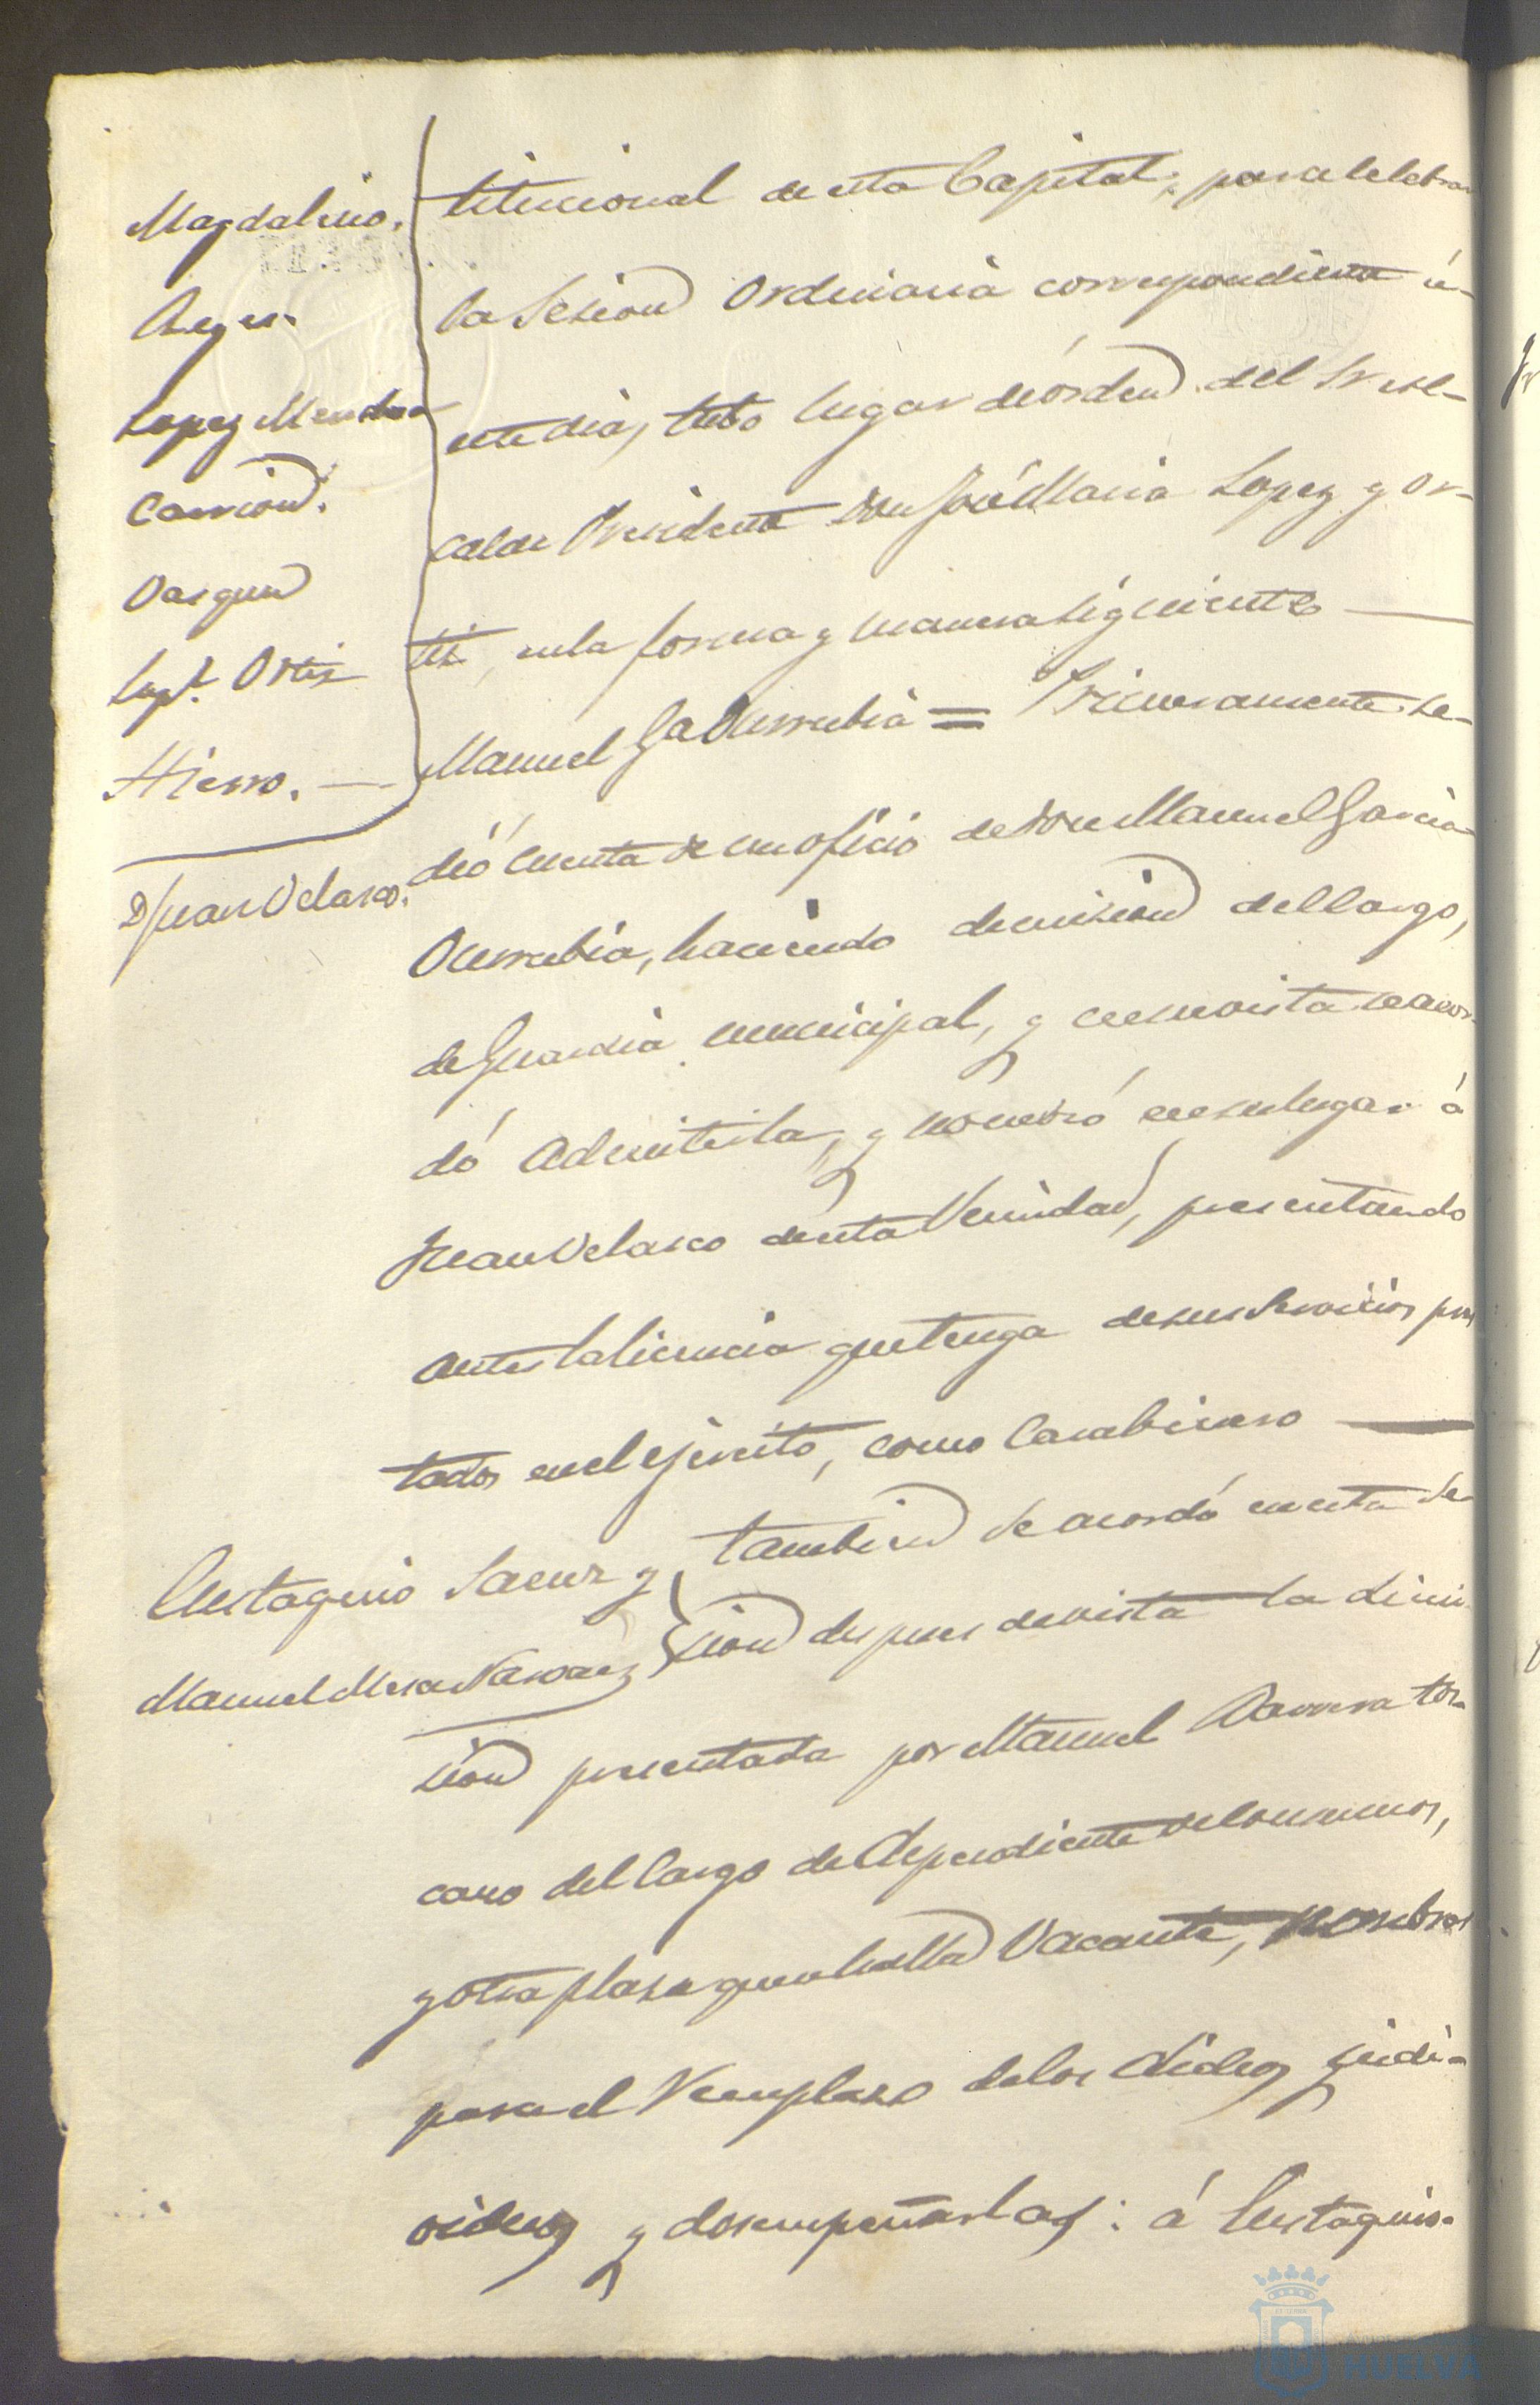 Magdaleno.
Reyes.
Lopez Mendoza
Carrion.
Oarguen
Sup.te Ortiz
Hierro.
D Juan Velasco.
titucional de esta Capital, para celebrar
la Sesion Ordinaria correspondiente á
este dia, tubo lugar de órden del Sr Al-
calde Presidente Don José Maria Lopez y Or-
tiz, en la forma y manera siguiente
Manuel Ga Ocurrubia = Primeramente se
dió cuenta de un oficio de Don Manuel Garcia
Ocurrubia, haciendo dimision del Cargo,
de Guardia municipal, y en su vista se acor-
dó admitirla, y nombró en su lugar á
Juan Velasco de esta Vecindad, presentando
antes la licencia que tenga de sus Servicios pres
tados en el ejército, como Carabinero
Eustaquio Saenz y
Manuel Mesa Narvaez
Tambien se acordó en esta Se-
sion despues de vista la dimi-
sion presentada por Manuel Barrera Tos-
cano del Cargo de dependiente de Consumos,
y otra plaza que se halla Vacante, nombrar
para el Remplazo de los aludos
y desempeñarlas: á Eustaquio
HUELVA